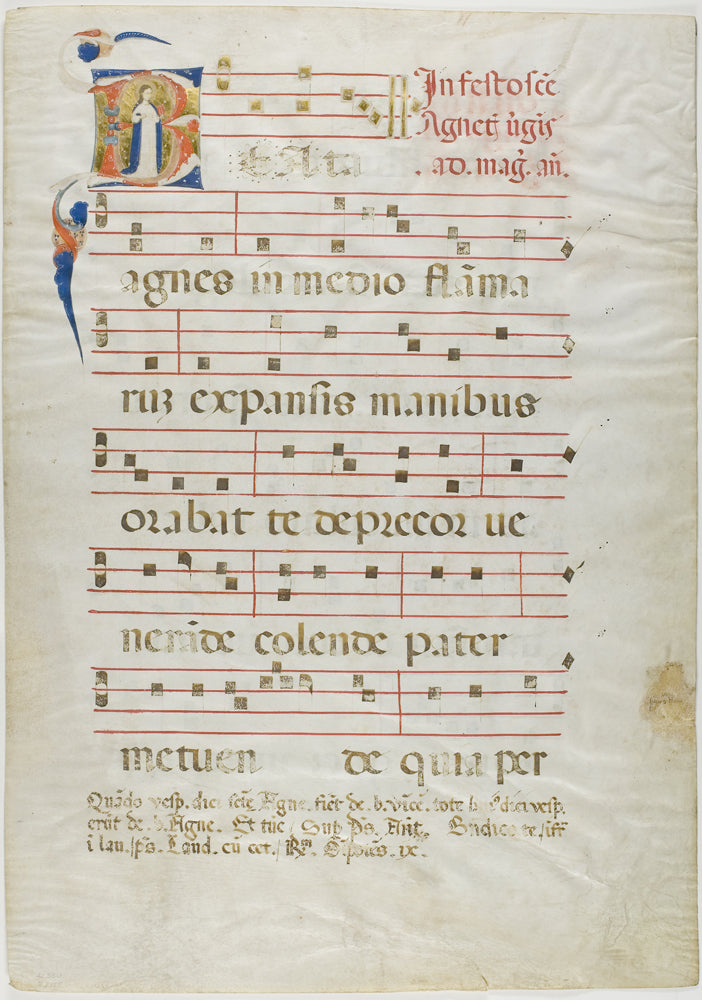 In festo scē
Agnetꝭ v̄gis
. ad. mag̃. añ.
BEATa
agnes in medio flāma
ruꝫ expansis manibus
orabat te deprecor ue
nerāde colende pater
metuen de quia per
Quādo vesp. diei scte Agne. fiēt de. b. vice. tote diei vesp.
erūt de. b. Agne. Et tūc Sup ps. Añt. Bñdico te
ī lau. ps. Laud. cū cet.